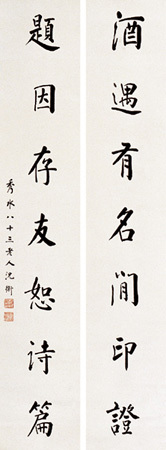 酒遇有名閒印證
題因存友恕詩篇
秀水八十三老人沈衛